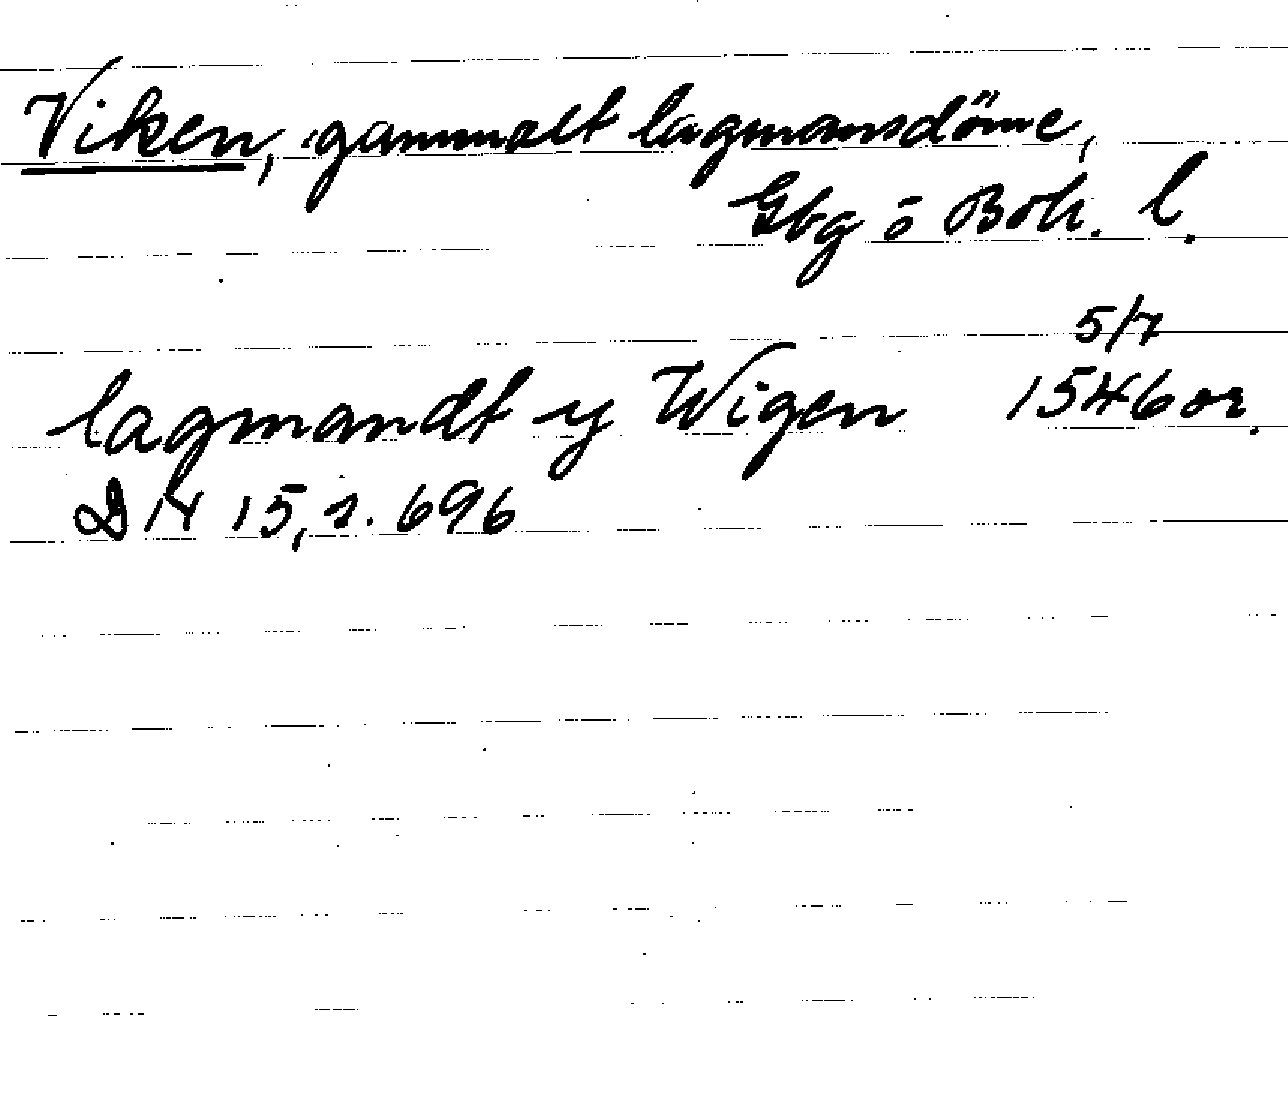 Viken, gammalt lagmansdöme,
Gbg o Boh. l.
5/7
lagmandt y Wigen 1546 or.
DN 15, s. 696